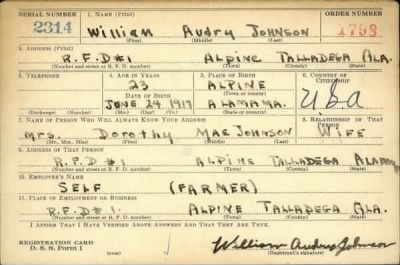 SERIAL NUMBER 1. NAME (Print) ORDER NUMBER
2314 William Audry Johnson 1793
(First) (Middle) (Last)
2. ADDRESS (Print)
R.F.D#1 Alpine Talladega Ala.
(Number and street or R. F. D. number) (Town) (County) (State)
3. TELEPHONE 4. AGE IN YEARS 5. PLACE OF BIRTH 6. COUNTRY OF CITIZENSHIP
23 Alpine
DATE OF BIRTH (Town or county)
June 24 1917 Alamama. USA
(Exchange) (No.) (Mo.) (Day) (Yr.) (State or country)
7. NAME OF PERSON WHO WILL ALWAYS KNOW YOUR ADDRESS 8. RELATIONSHIP OF THAT PERSON
Mrs. Dorothy Mae Johnson Wife
(Mr., Mrs., Miss) (First) (Middle) (Last)
9. ADDRESS OF THAT PERSON
R.F.D #1 Alpine Talladega
(Number and street or R. F. D. number) (Town) (County) (State)
10. EMPLOYER'S NAME
Self (Farmer)
11. PLACE OF EMPLOYMENT OR BUSINESS
R.F.D#1. Alpine Talladega Ala.
(Number and street or R. F. D. number) (Town) (County) (State)
I AFFIRM THAT I HAVE VERIFIED ABOVE ANSWERS AND THAT THEY ARE TRUE.
REGISTRATION CARD
D. S. S. Form 1 William Audry Johnson
(Registrant's signature)